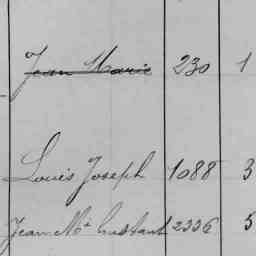 Jean Marie 230 1
Louis Joseph 1088 3
Jean Mie Constant 2336 5